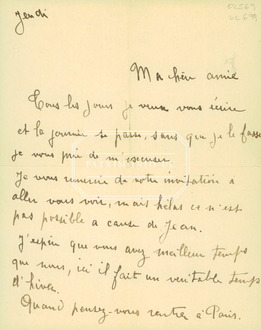 Jeudi
Ma chère amie
Tous les jours je veux vous écrire
et la journée se passe, sans que je le fasse
je vous prie de m'excuser
Je vous remercie de votre invitation à
aller vous voir, mais hélas ce n'est
pas possible a cause de Jean.
J'espère que vous avez meilleur temps
que nous, ici il fait un veritable temps
d'hiver.
Quand pensez-vous rentrer à Paris.